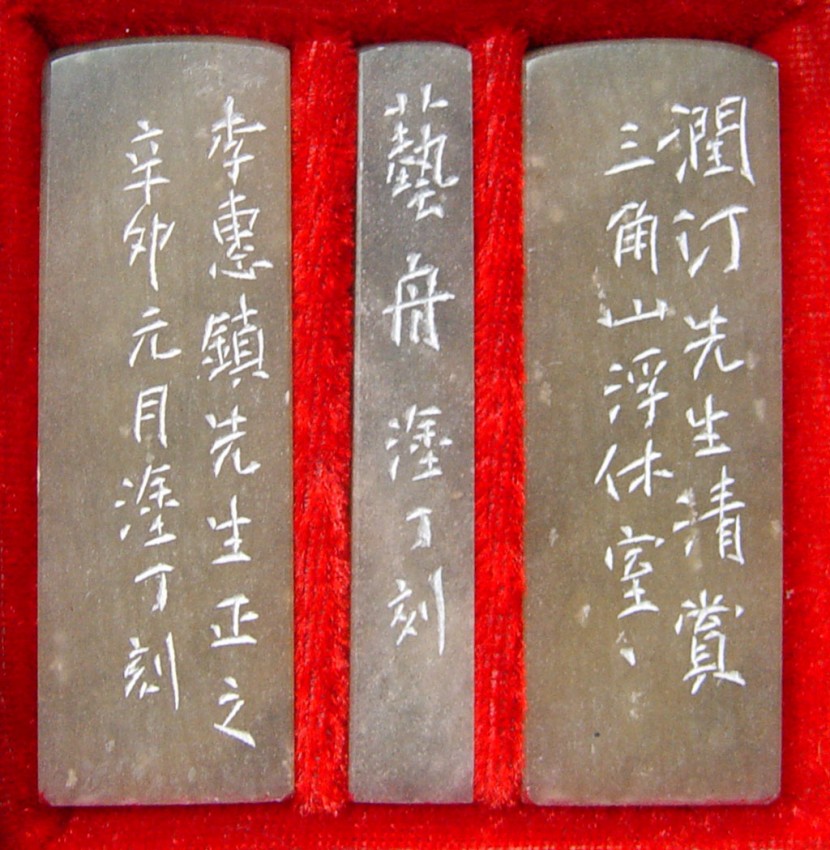 潤汀先生清賞
三角山浮休室
藝舟塗丁刻
李惠鎮先生正之
辛卯元月塗丁刻